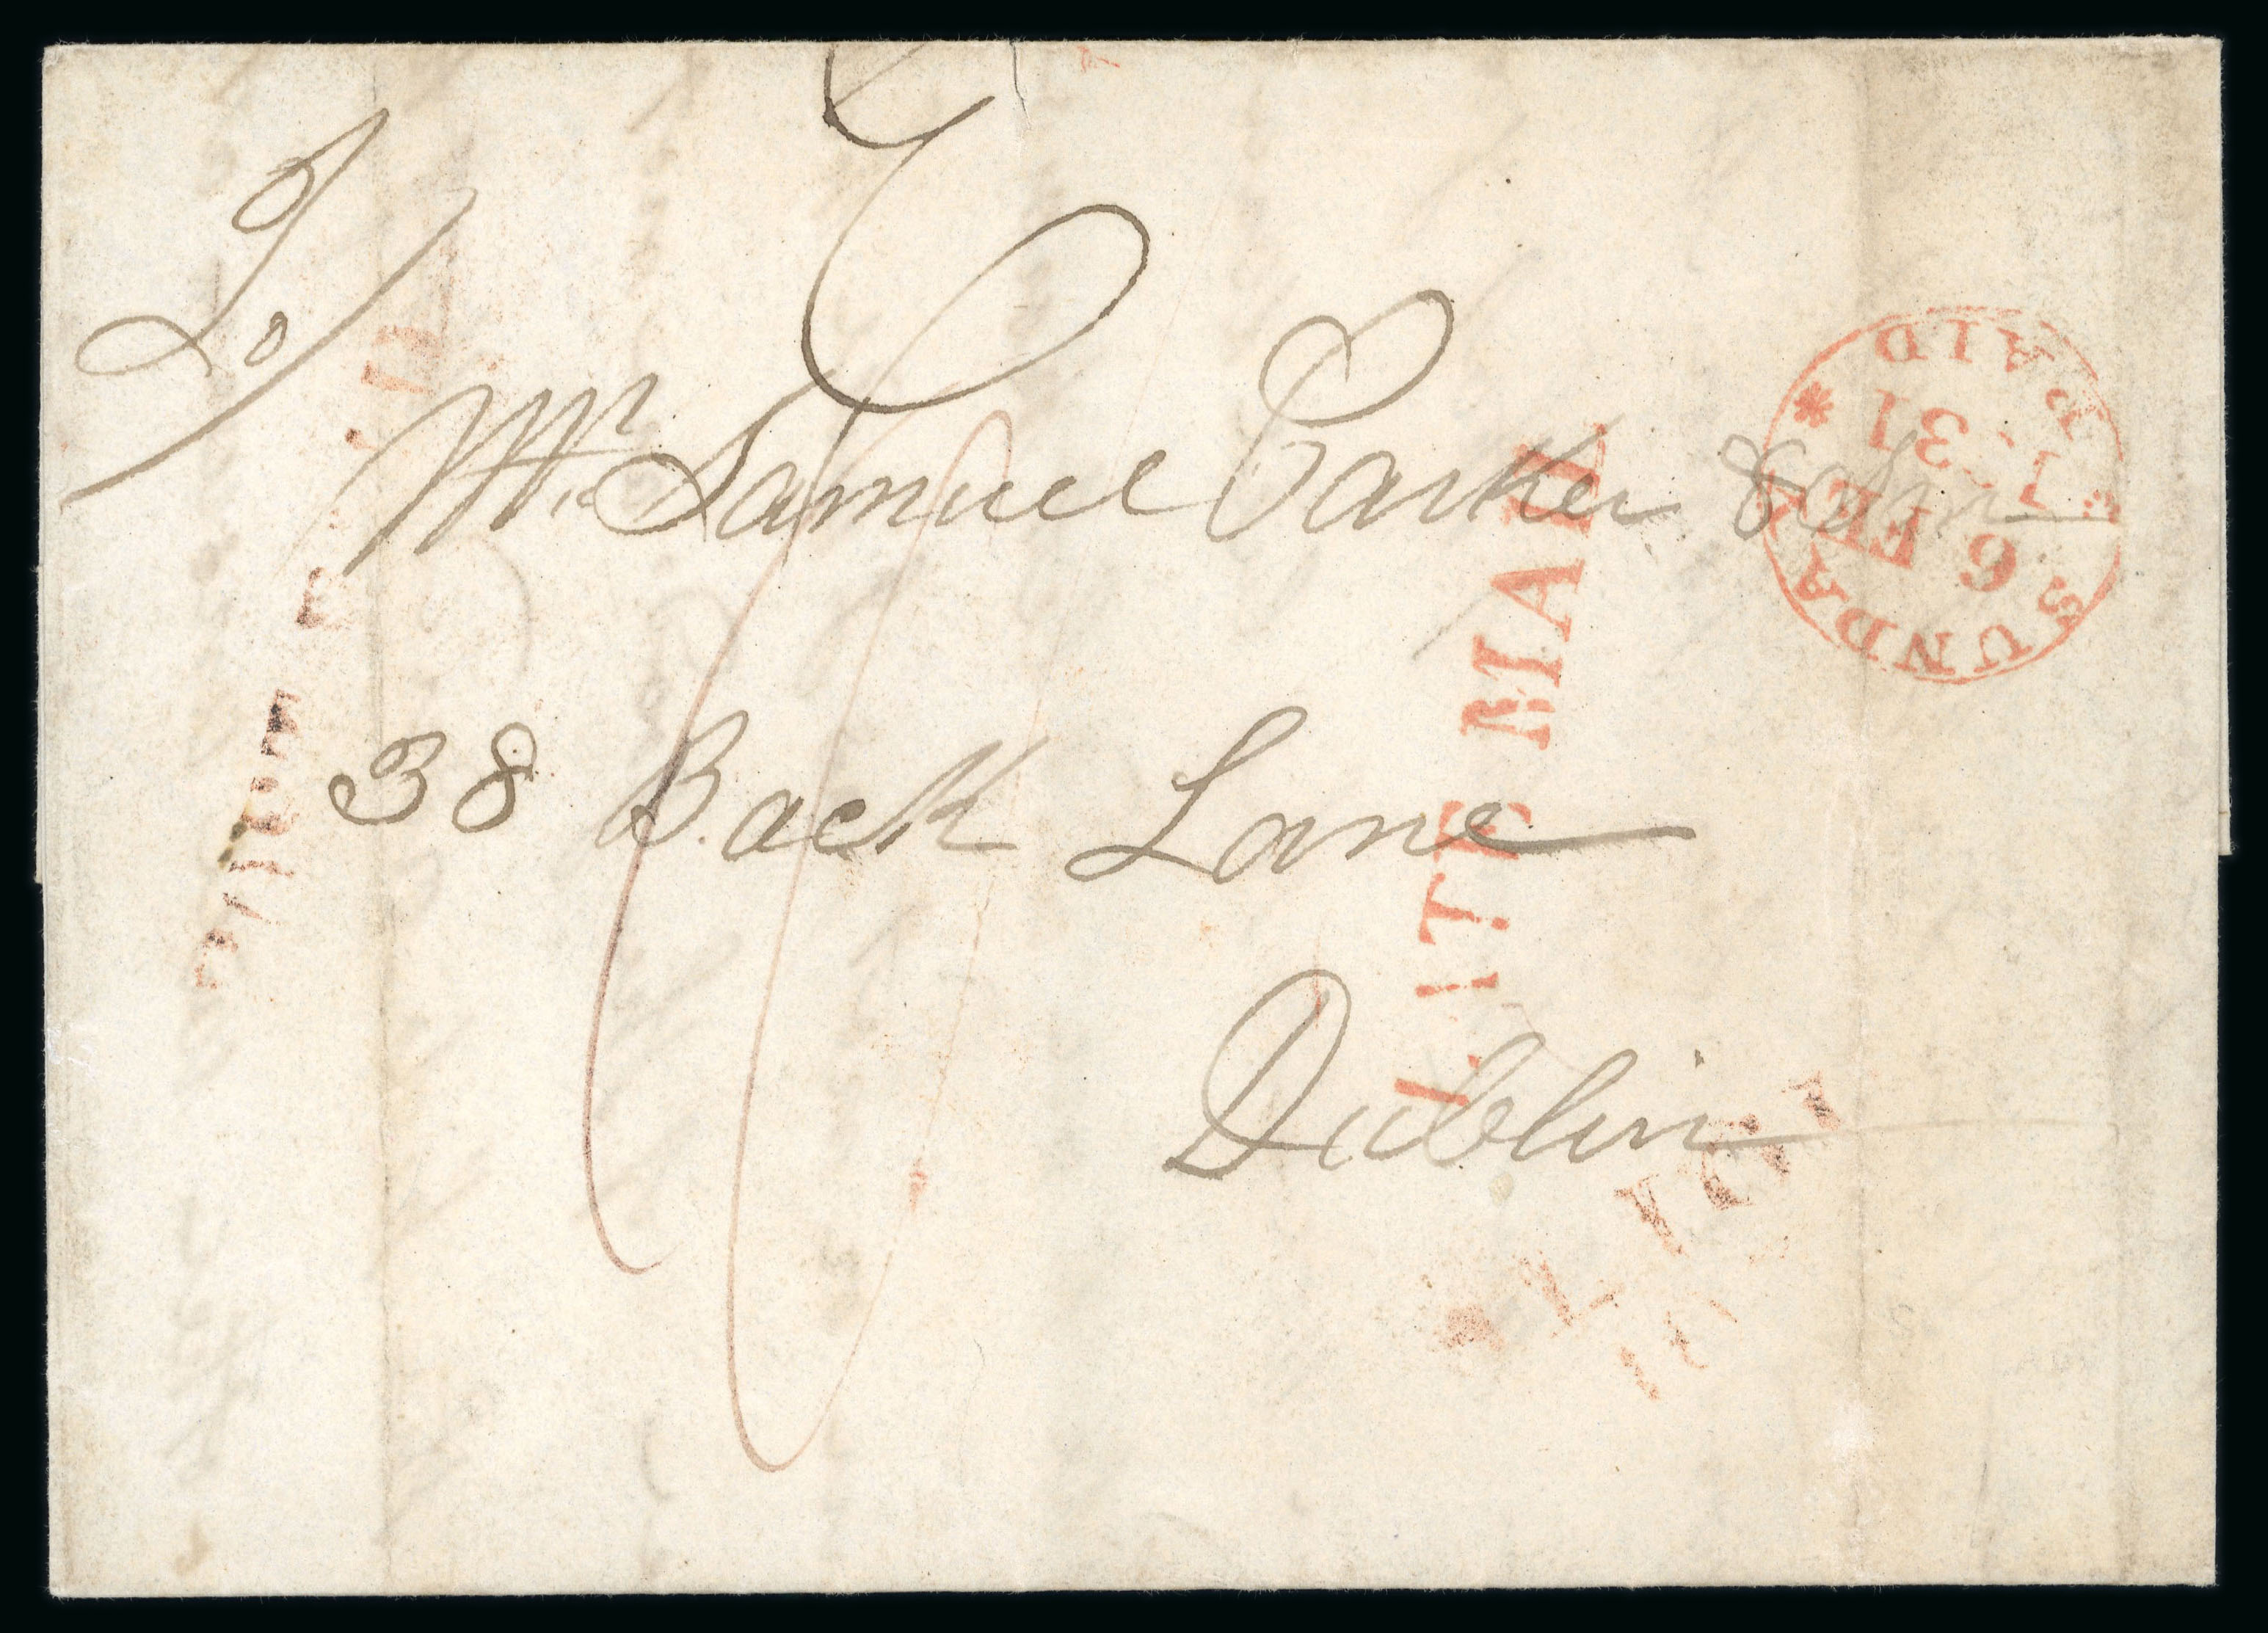 To/
Mr. Samuel Parker & Son
38 Back Lane
Dublin
LATE MAIL
SUNDAY
6 FE
1831
PAID